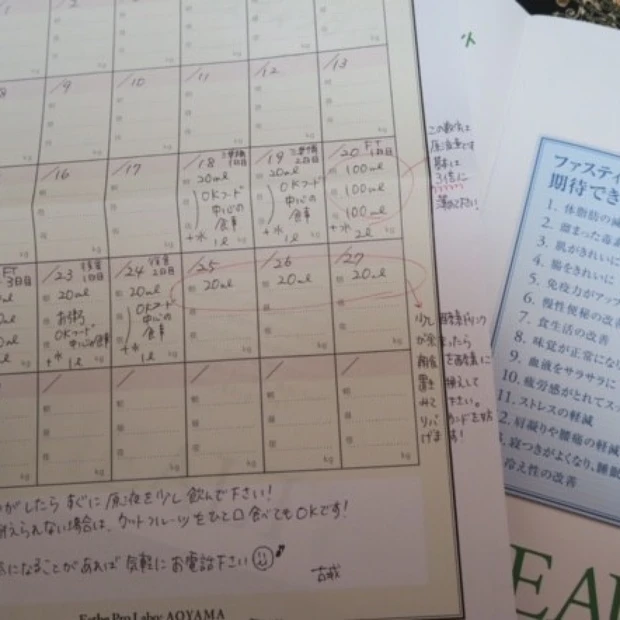 /9
/10
/11
/12
/13
/16
/17
/18 準備1日目
20ml
OKフード
中心の
食事
+水 1l
/19 準備2日目
20ml
OKフード
中心の
食事
+水 1l
/20 FT 1日目
100ml
100ml
100ml
+水 2l
この数字は
原液量です
3倍に
薄めて下さい
FT 3日目
/23 復食1日目
20ml
お粥
OKフード
中心の食事
+水 1l
/24 復食2日目
20ml
OKフード
中心の
食事
+水 1l
/25
20ml
/26
20ml
/27
20ml
少し酵素ドリンク
が余ったら
朝食を酵素に
置き換えして
みて下さい。
がしたら すぐに 原液を少し 飲んで下さい!
耐えられない場合は、カットフルーツをひと口食べてもOKです!
になることがあれば 気軽に お電話下さい
古城
Esthe Pro Labo: AOYAMA
ファスティ
期待でき
1. 体脂肪の減
2. 溜まった毒素
3. 肌がきれいに
4. 腸をきれいに
5. 免疫力がアップ
6. 慢性便秘の改善
7. 食生活の改善
8. 味覚が正常にな
9. 血液をサラサラに
10. 疲労感がとれてス
11. ストレスの軽減
2. 肩凝りや腰痛の軽減
寝つきがよくなり、睡眠
冷え性の改善